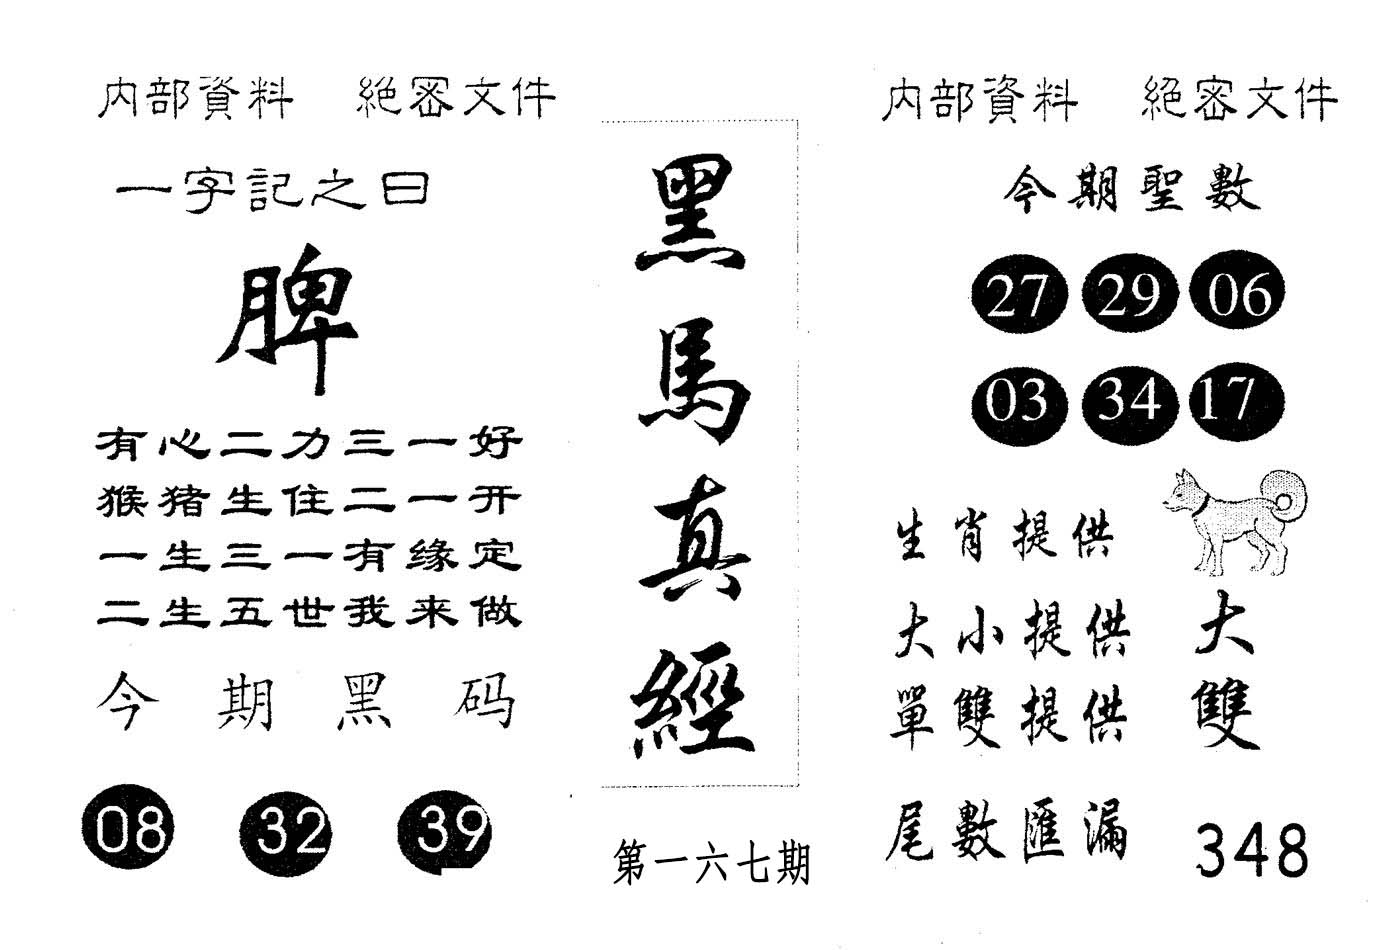 内部資料 絕密文件
一字記之曰
脾
有心二力三一好
猴猪生住二一开
一生三一有缘定
二生五世我来做
今期黑码
08 32 39
黑馬真經
第一六七期
内部資料 絕密文件
今期聖數
27 29 06
03 34 17
生肖提供
大小提供 大
單雙提供 雙
尾數匯漏 348